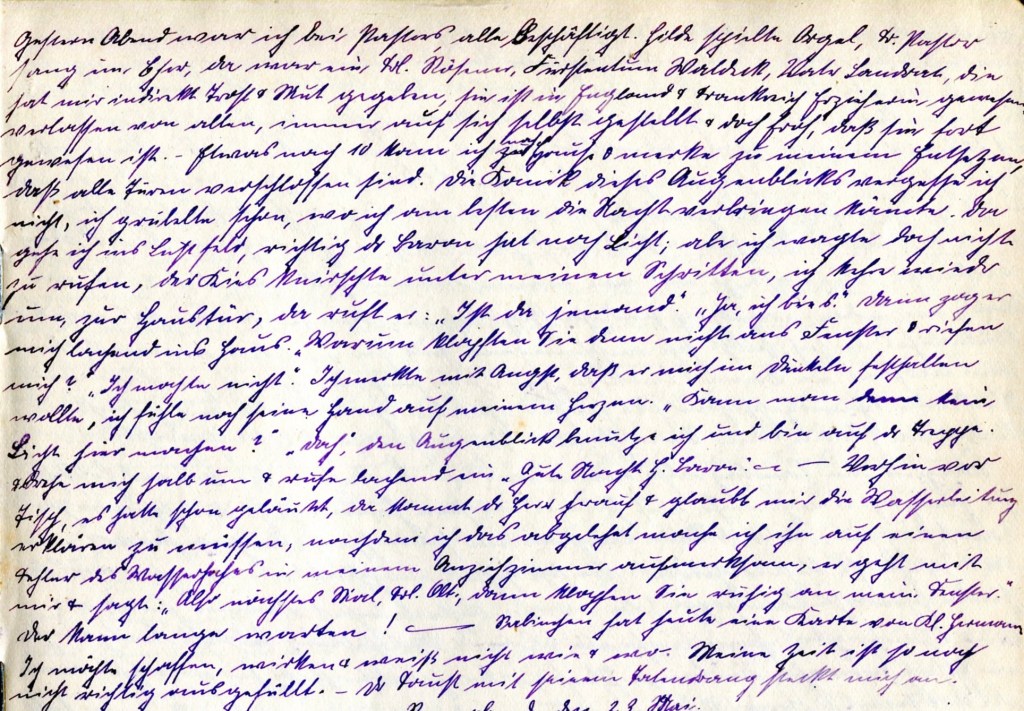 Gestern Abend war ich bei Pastors, alle beschäftigt. Hilde spielte Orgel, Fr. Pastor
sang im Chor, da war ein Frl. Fürstentum Waldeck, Vater Landrat, die
hat mir indirekt Trost & Mut gegeben, sie ist in England & Frankreich Erzieherin gewesen
verlassen von allen, immer auf sich selbst gestellt & doch froh, daß sie fort
gewesen ist. – Etwas nach 10 kam ich nach Hause & merke zu meinem Entsetzen,
daß alle Türen verschlossen sind. Die Komik dieses Augenblicks vergesse ich
nicht, ich grübelte schon, wo ich am besten die Nacht verbringen könnte. Da
gehe ich ins richtig der Baron hat noch Licht; aber ich wagte doch nicht
zu rufen, der Kies knirschte unter meinen Schritten, ich kehre wieder
um, zur Haustür, da ruft er: „Ist da jemand." „Ja, ich bin's." Dann zog er
mich lachend ins Haus. „Warum klopften Sie denn nicht ans Fenster & riefen
mich?" „Ich mochte nicht". Ich merkte mit Angst, daß er mich im Dunkeln festhalten
wollte, ich fühle noch seine Hand auf meinem Herzen. „Kann man denn kein
Licht hier machen?" „doch", den Augenblick benutze ich und bin auf der Treppe.
& drehe mich halb um & rufe lachend ein „Gute Nacht H. Baron." — Vorhin vor
Tisch, es hatte schon geläutet, da kommt der Herr herauf & glaubt mir die Wasserleitung
erklären zu müssen, nachdem ich das abgelehnt mache ich ihn auf einen
Fehler des in meinem Anziehzimmer aufmerksam, er geht mit
mir & sagt: „Also nächstes Mal, Frl. dann klopfen Sie ruhig an mein Fenster."
Der kann lange warten! — hat heute eine Karte von Kl. Hermann
Ich möchte schaffen, wirken & weiß nicht wie & wo. Meine Zeit ist so noch
nicht richtig ausgefüllt. – Der Faust mit seinem Tatendrang steckt mich an.
den 23. Mai.